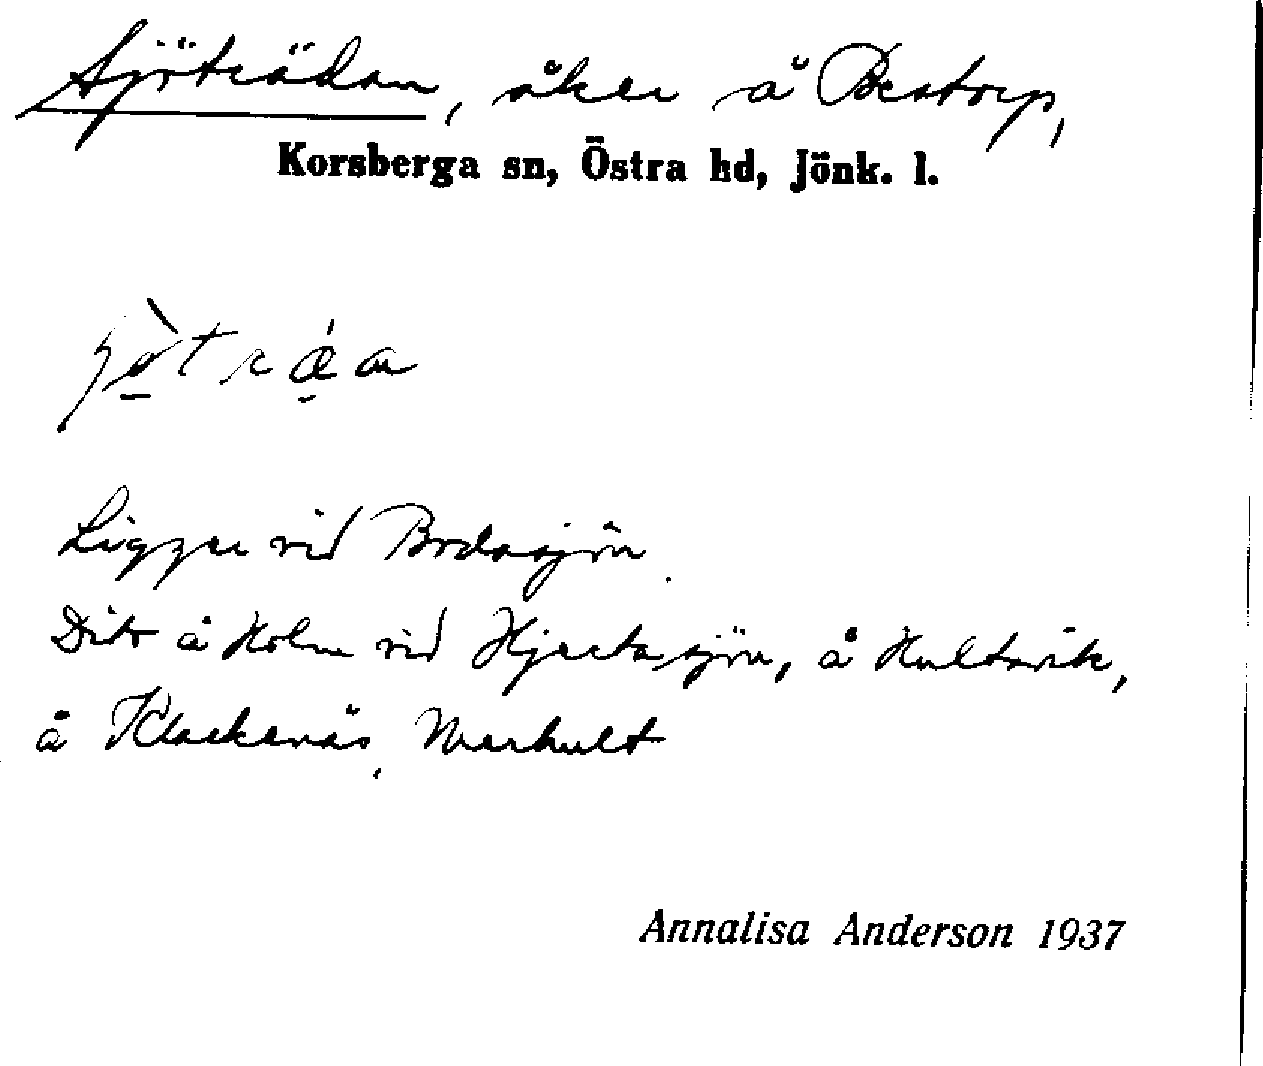 Sjöträdan, åker å Bestorp,
Korsberga sn, Östra hd, Jönk. l.
Ligger vid Bodasjön.
Dito å Holm vid Hjertasjön, å Hultavik,
å Klackenäs,
Annalisa Anderson 1937